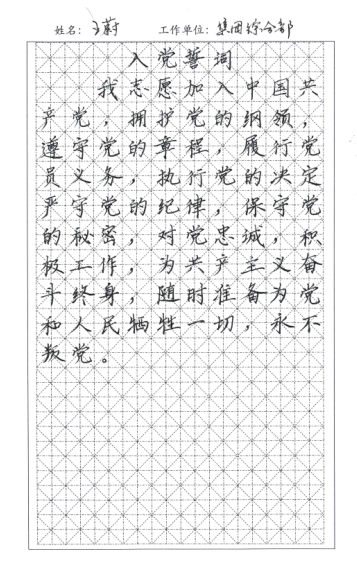 姓名：王蔚 工作单位：集团综合部
入党誓词
我志愿加入中国共
产党，拥护党的纲领，
遵守党的章程，履行党
员义务，执行党的决定
严守党的纪律，保守党
的秘密，对党忠诚，积
极工作，为共产主义奋
斗终身，随时准备为党
和人民牺牲一切，永不
叛党。